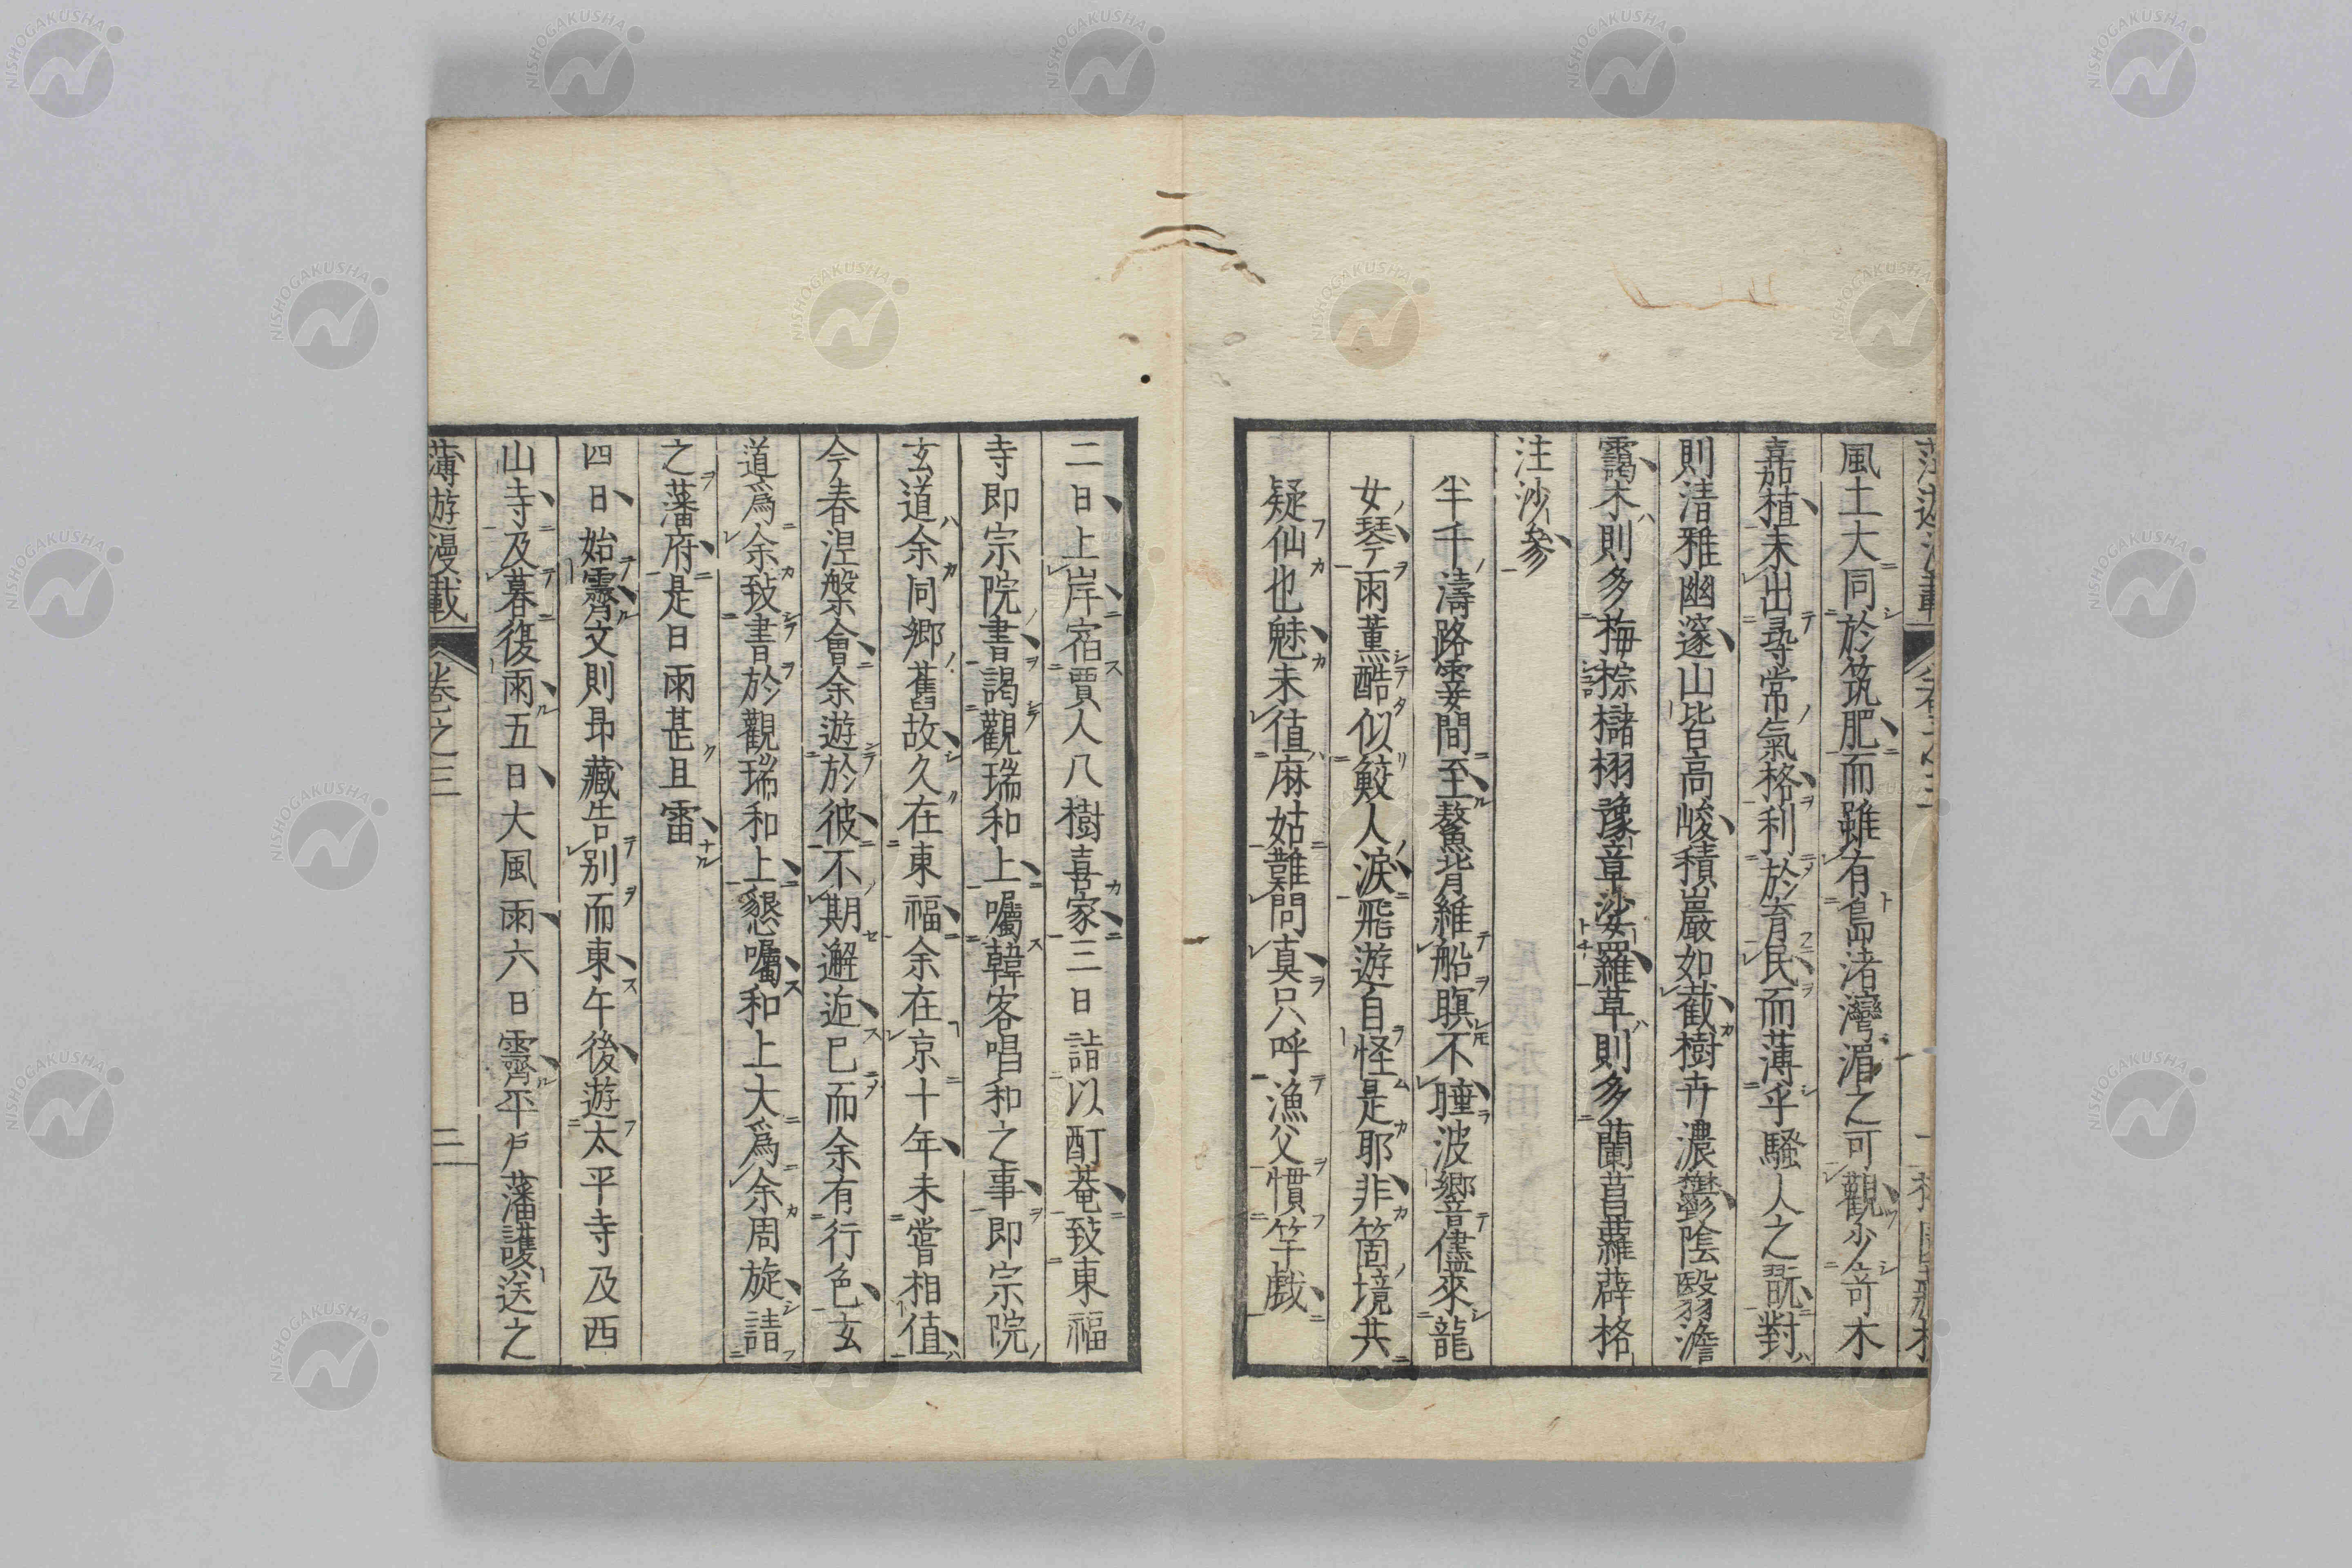 風土大同於筑肥而雖有島渚灣湄之可觀少奇木
嘉植未出尋常氣格利於育民而薄乎騷人之翫對
則清雅幽邃山皆高峻積巖如截樹卉濃鬱陰翳澹
靄木則多梅棕櫧栩豫章娑羅草則多蘭菖蘿薜格
注沙參
半千濤路霎間至鰲背維船瞑不睡波響儘來龍
女琴雨薰酷似鮫人淚飛遊自怪是耶非箇境共
疑仙也魅未值麻姑難問真只呼漁父慣竿戲
二日上岸宿賈人八樹喜家三日詣以酊菴致東福
寺即宗院書謁觀瑞和上囑韓客唱和之事即宗院
玄道余同鄉舊故久在東福余在京十年未嘗相值
今春涅槃會余遊於彼不期邂逅已而余有行色玄
道為余致書於觀瑞和上懇囑和上大為余周旋請
之藩府是日雨甚且雷
四日始霽文則昻藏告別而東午後遊太平寺及西
山寺及暮復雨五日大風雨六日霽平戶藩護送之
薄遊漫載 卷之三 二